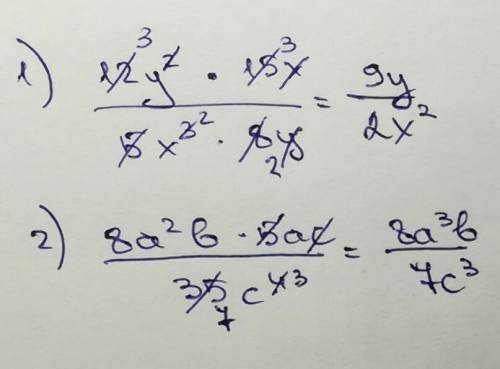 1) (12̸ ³ y^2̸ · 15̸ ³ x̸) / (5̸ x^3̸ ² · 8̸ ₂ y̸) = 9y / 2x²
2) (8a²b · 5̸ac̸) / (35̸ ₇ c^4̸ ³) = 8a³b / 7c³